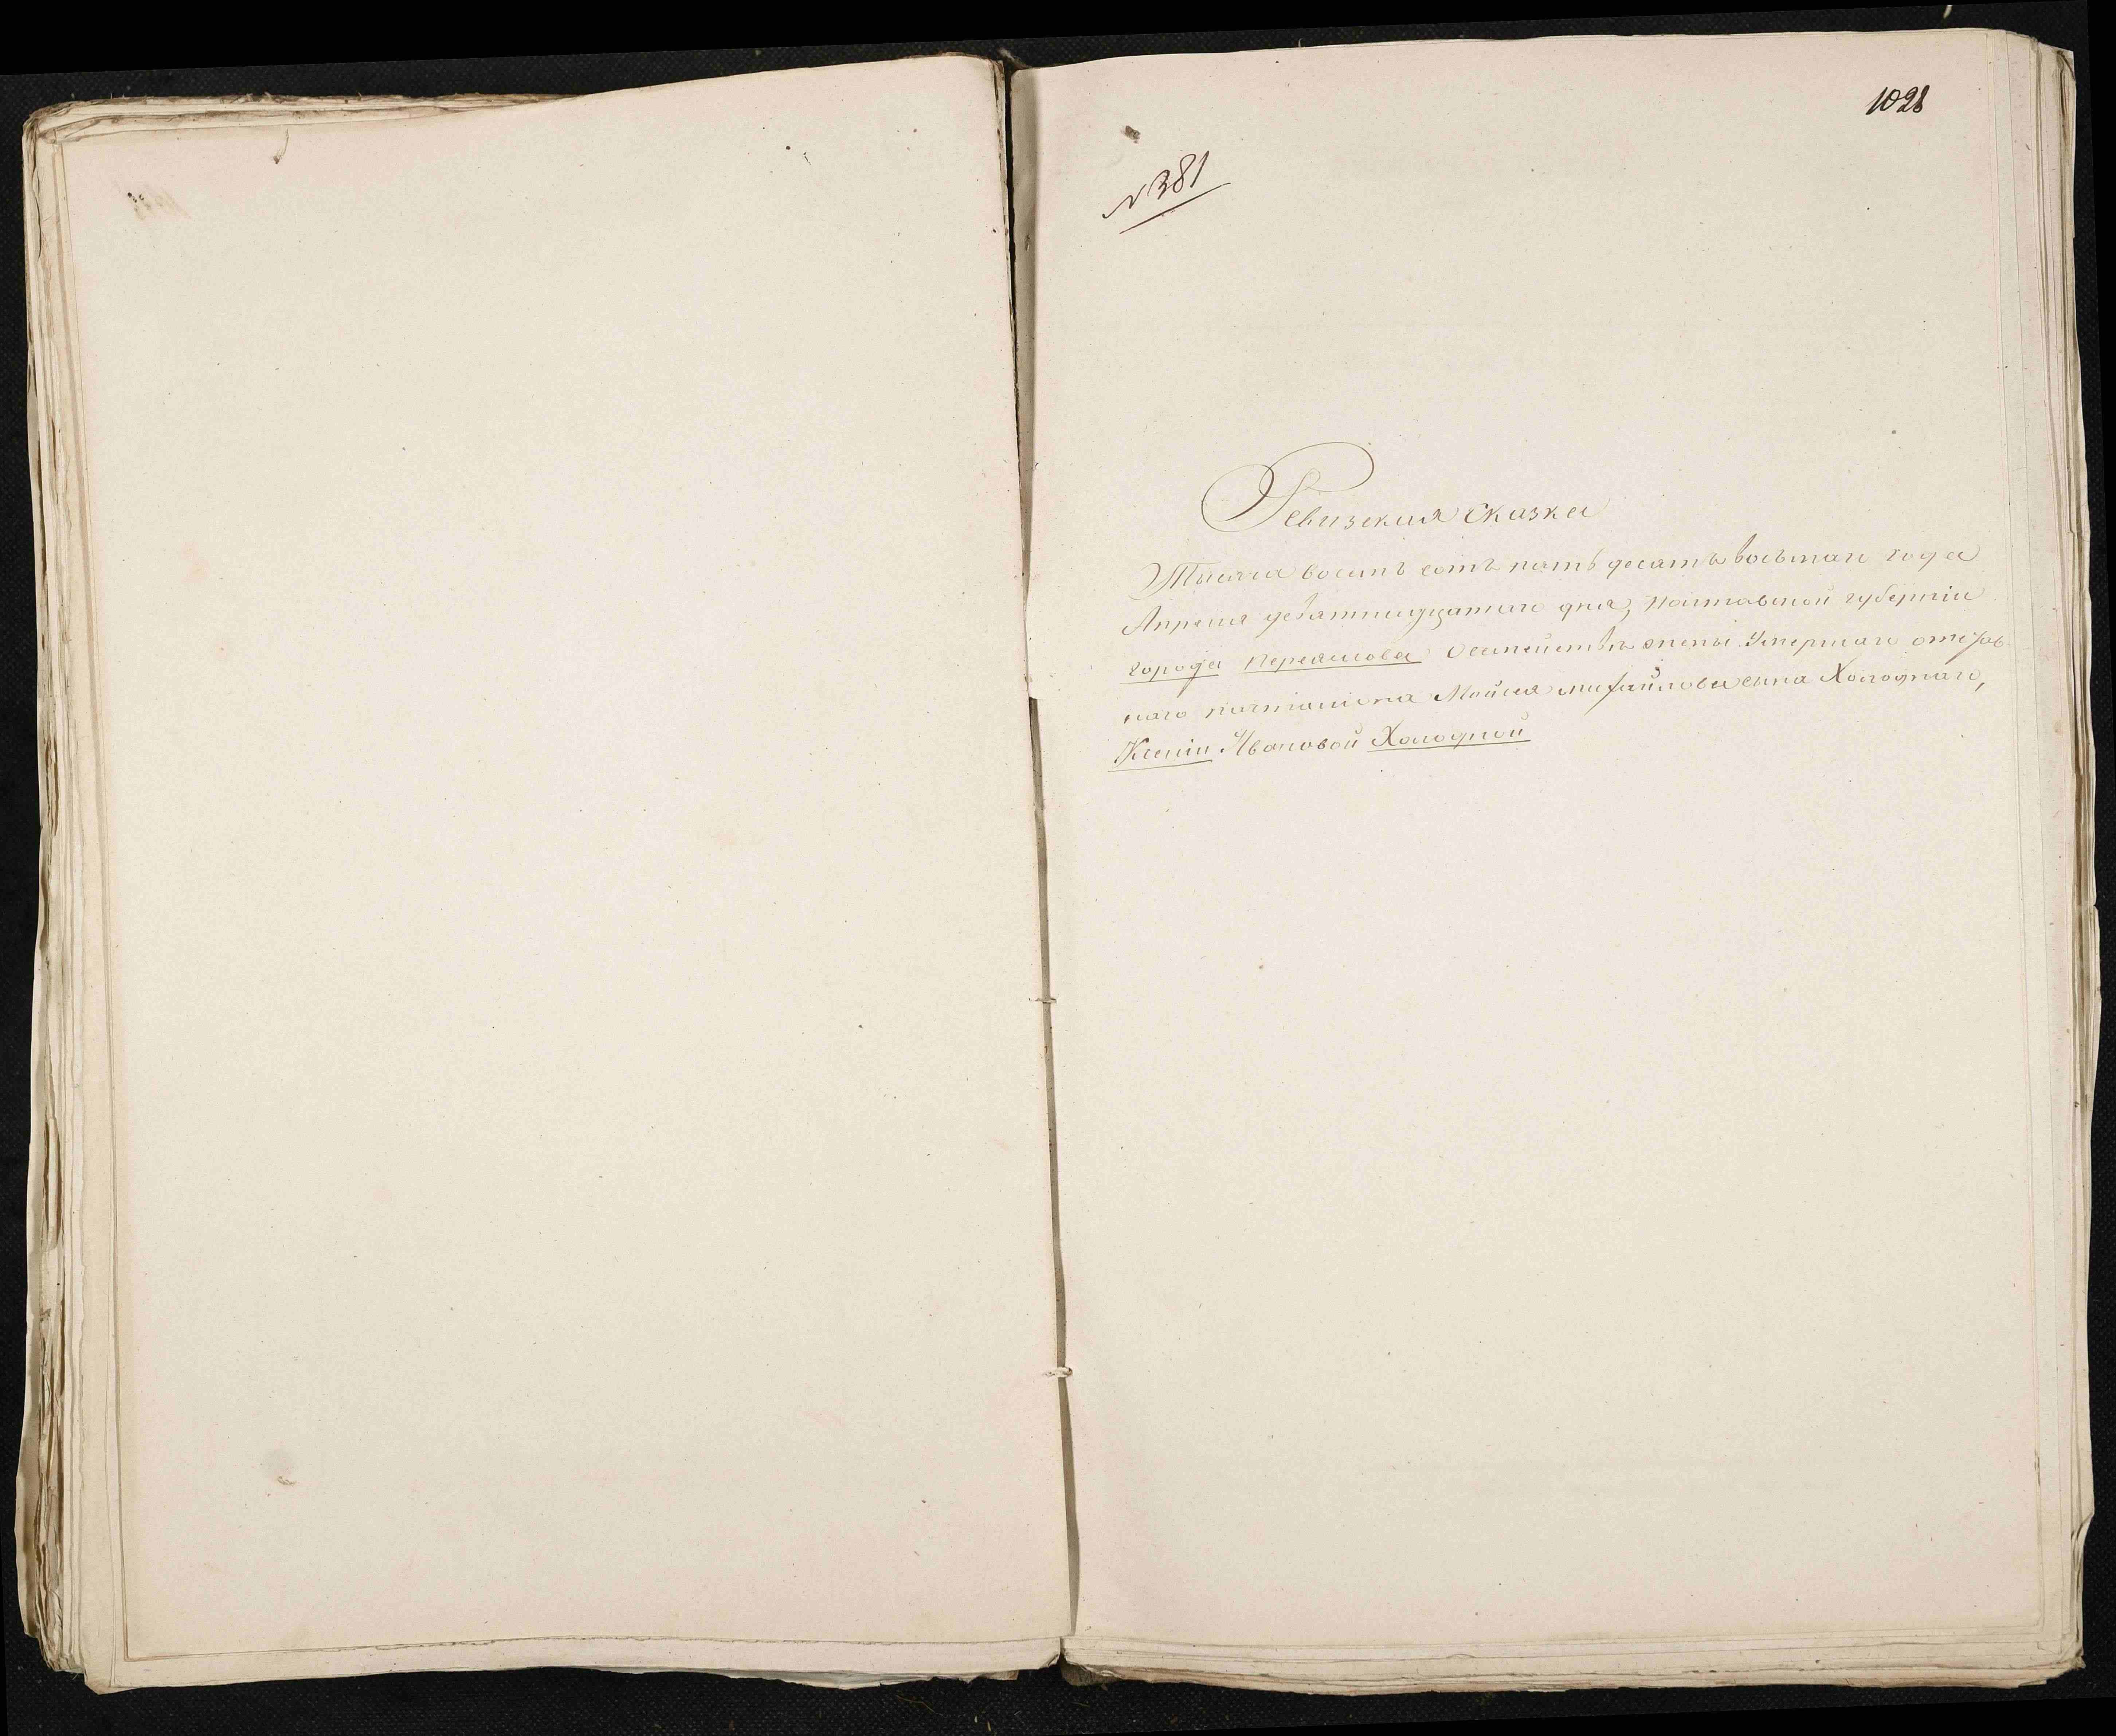 1028
№381
Ревизская сказка
Тысяча восемь сотъ пять десятъ восьмаго года
Апреля девятнадцатаго дня, Полтавской губерніи
города Переяслова О семействѣ жены Умершаго отстав
наго почталіона Мойсея михайлова сына Холоднаго,
Ксеніи Ивановой Холодной